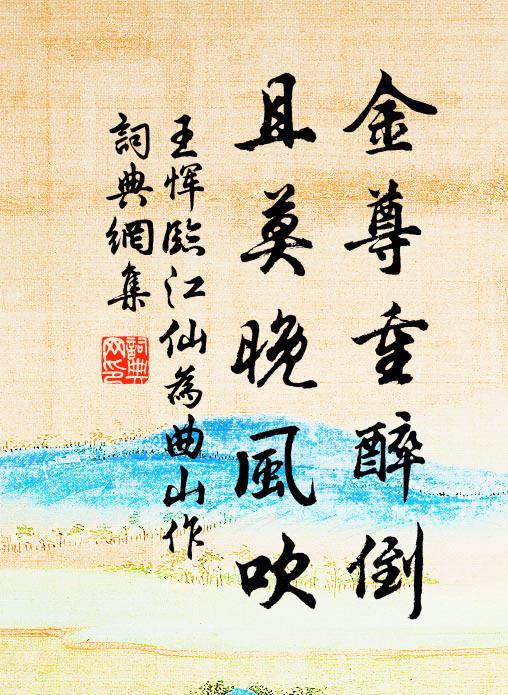 金尊重醉倒
且莫晚風吹
王惲臨江仙為曲山作
詞典網集
詞典網印